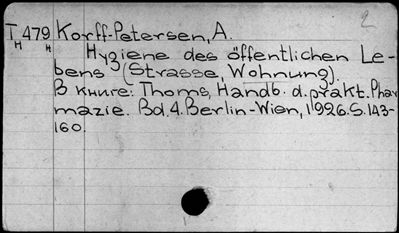 2
T 479 Korff-Petersen, A.
H H Hygiene des öffentlichen Le-
bens (Strasse, Wohnung).
В книге: Thoms, Handb. d. präkt. Phar
mazie. Bd. 4. Berlin-Wien, 1926. S. 143-
160.